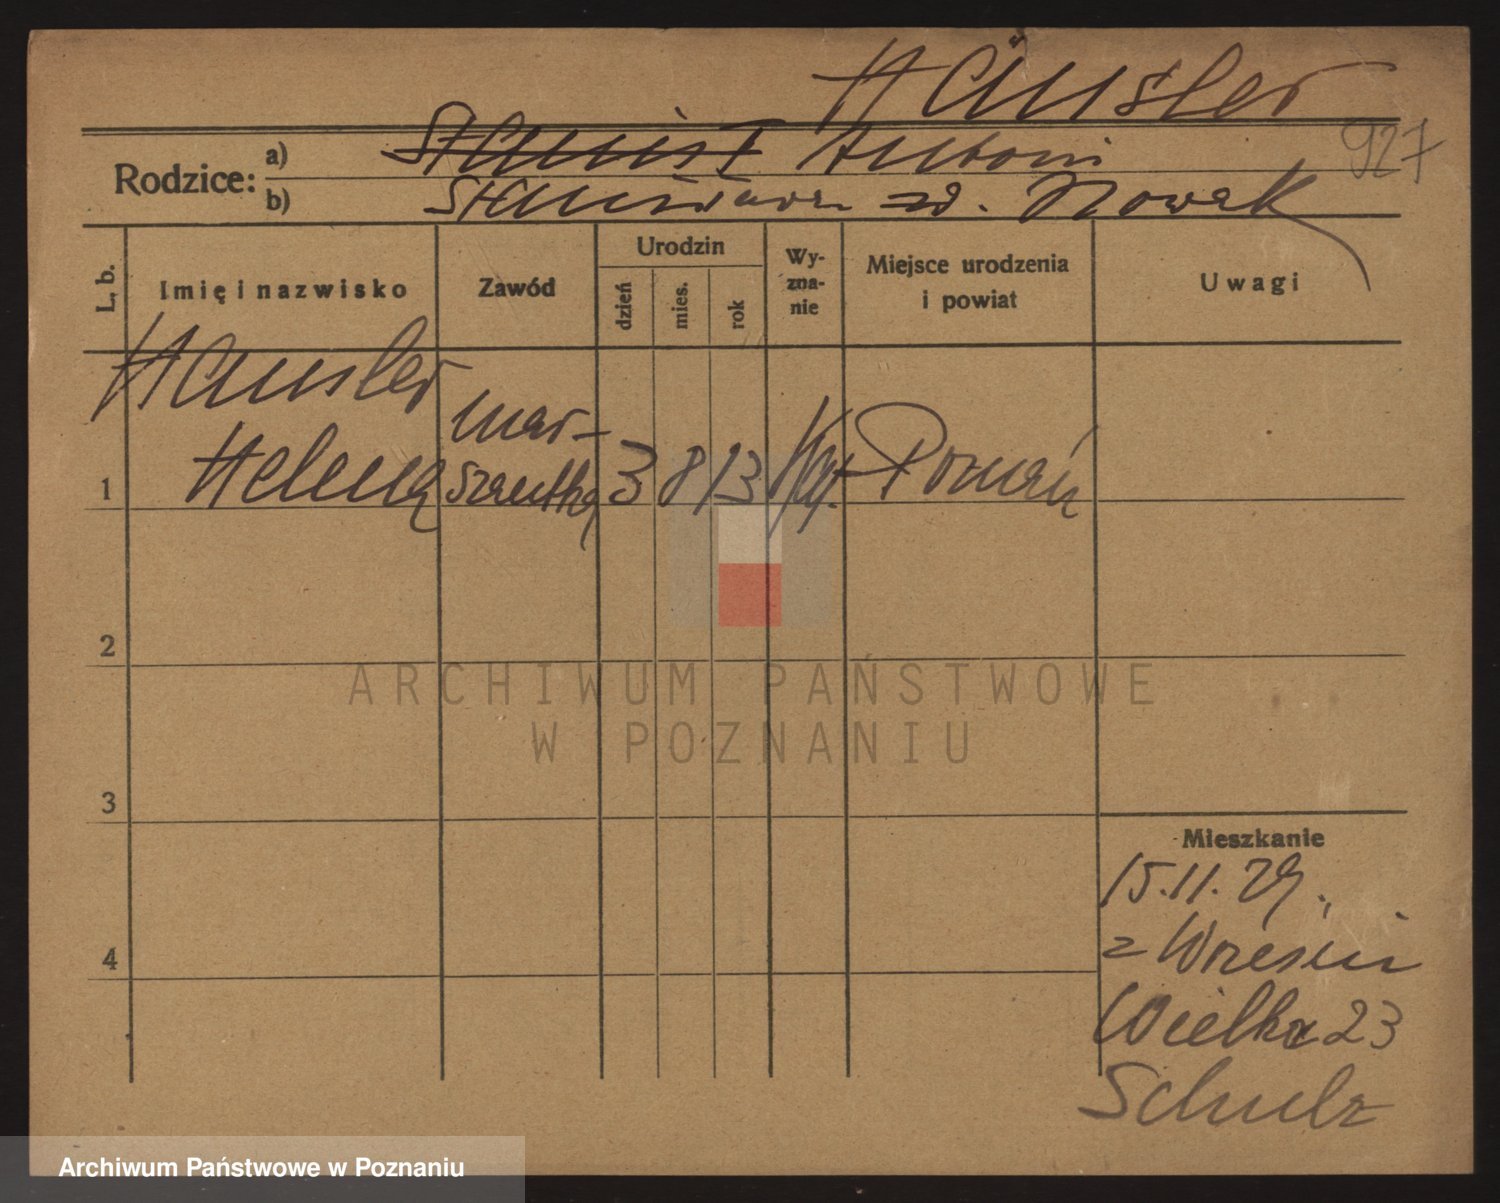 Häusler
927
Rodzice: a) Stanisł Antoni
b) Stanisława zd. Nowak
L. b.
Imię i nazwisko
Zawód
Urodzin
dzień
mies.
rok
Wy-
zna-
nie
Miejsce urodzenia
i powiat
Uwagi
Hausler
Helena
mar-
szantka
1
3 8 13 Kat. Poznań
2
3
4
Mieszkanie
15.11.29.
z Wrześni
Wielka 23
Schulz
ARCHIWUM PAŃSTWOWE
W POZNANIU
Archiwum Państwowe w Poznaniu